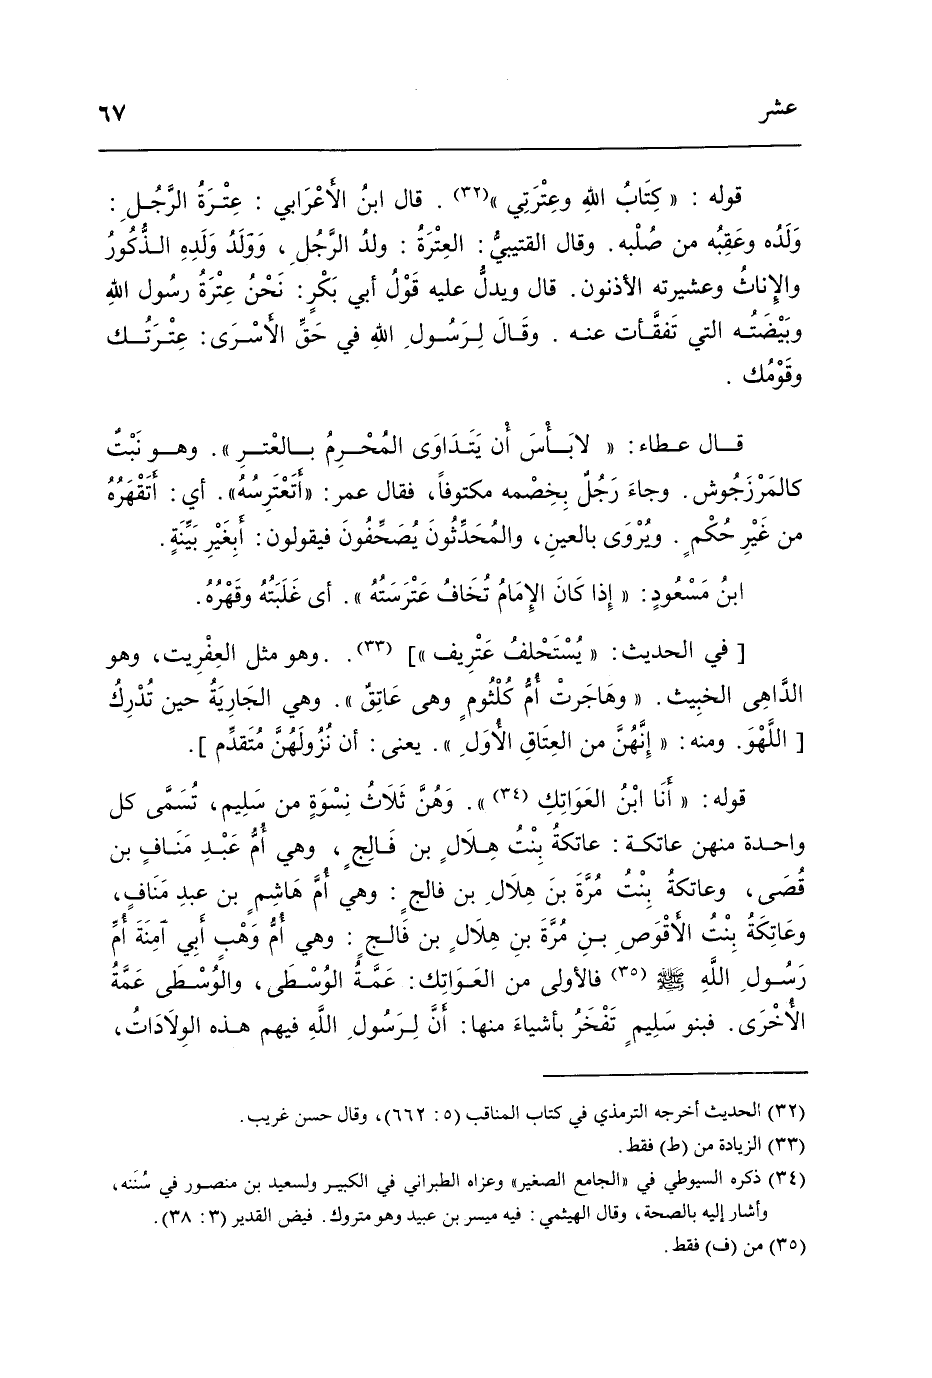 عشر
٦٧
قوله : « كِتَابُ اللهِ وعِتْرَتِي »(٣٢) . قال ابنُ الأَعْرابي : عِتْرَةُ الرَّجُـلِ :
وَلَدُه وعَقِبُه من صُلْبه. وقال القتيبيُّ: العِتْرَةُ : ولدُ الرَّجُلِ ، وَوَلَدُ وَلَدِهِ الـذُّكُورُ
والإناثُ وعشيرته الأدنون. قال ويدلُّ عليه قَوْلُ أبي بَكْرٍ: نَحْنُ عِتْرَةُ رسُول اللهِ
وبَيْضَتُـه التي تَفقَّـأت عنـه . وقَـالَ لِـرَسُـولِ اللهِ في حَقِّ الأَسْـرَى: عِتْـرَتُـك
وقَوْمُك .
قـال عـطاء: « لابَـأْسَ أن يَتَـدَاوَى المُحْـرِمُ بـالعْتـرِ ». وهـو نَبْتٌ
كالمَرْزَجُوش. وجاءَ رَجُلٌ بِخِصْمه مكتوفاً، فقال عمر: «أَتَعْتَرِسُهُ». أي: أَتَقْهَرُهُ
من غَيْرِ حُكْمٍ . ويُرْوَى بالعينِ، والمُحَدِّثُونَ يُصَحِّفُونَ فيقولون: أَبِغَيْرِ بَيِّنَةٍ.
ابنُ مَسْعُودٍ: « إذا كَانَ الإِمَامُ تُخَافُ عَتْرَسَتُهُ ». أى غَلَبَتُهُ وقَهْرُهُ.
[ في الحديث: « يُسْتَخْلفُ عَتْرِيف »] (٣٣). .وهو مثل العِفْريت، وهو
الدَّاهِى الخبيث. « وهَاجَرتْ أُمُّ كُلْثُومٍ وهى عَاتِقٌ ». وهي الجَارِيَةُ حين تُدْرِكُ
[ اللَّهْوَ. ومنه: « إنَّهُنَّ من العِتَاقِ الأُوَلِ ». يعنى: أن نُزُولَهُنَّ مُتَقدِّم ].
قوله: « أَنَا ابْنُ العَوَاتِكِ (٣٤) ». وَهُنَّ ثَلَاثُ نِسْوَةٍ من سَلِيم، تُسَمَّى كل
واحـدة منهن عاتكـة : عاتكةُ بِنْتُ هِـلَالٍ بن فَـالِجٍ ، وهي أُمُّ عَبْـدِ مَنَـافٍ بن
قُصَى، وعاتكةُ بِنْتُ مُرَّةَ بنَ هِلَالِ بن فالجٍ : وهي أُمَّ هَاشِمٍ بن عبدِ مَنَافٍ،
وعَاتِكَةُ بِنْتُ الأَقْوَصِ بـنِ مُرَّةَ بنِ هِلَالٍ بن فَالـجٍ : وهي أُمُّ وَهْبٍ أَبِي آمِنَةَ أُمِّ
رَسُـولِ اللَّهِ ﷺ (٣٥) فالأولى من العَـوَاتِكَ: عَمَّـةُ الوُسْـطَى، والوُسْطَى عَمَّةُ
الأُخْرَى. فبنو سَلِيمٍ تَفْخَرُ بأشياءَ منها: أَنَّ لِرَسُولِ اللَّهِ فيهم هـذه الوِلَادَاتُ،
(٣٢) الحديث أخرجه الترمذي في كتاب المناقب (٥: ٦٦٢)، وقال حسن غريب.
(٣٣) الزيادة من (ط) فقط.
(٣٤) ذكره السيوطي في «الجامع الصغير» وعزاه الطبراني في الكبيـر ولسعيد بن منصـور في سُنَنه،
وأشار إليه بالصحة، وقال الهيثمي: فيه ميسر بن عبيد وهو متروك. فيض القدير (٣: ٣٨).
(٣٥) من (ف) فقط.